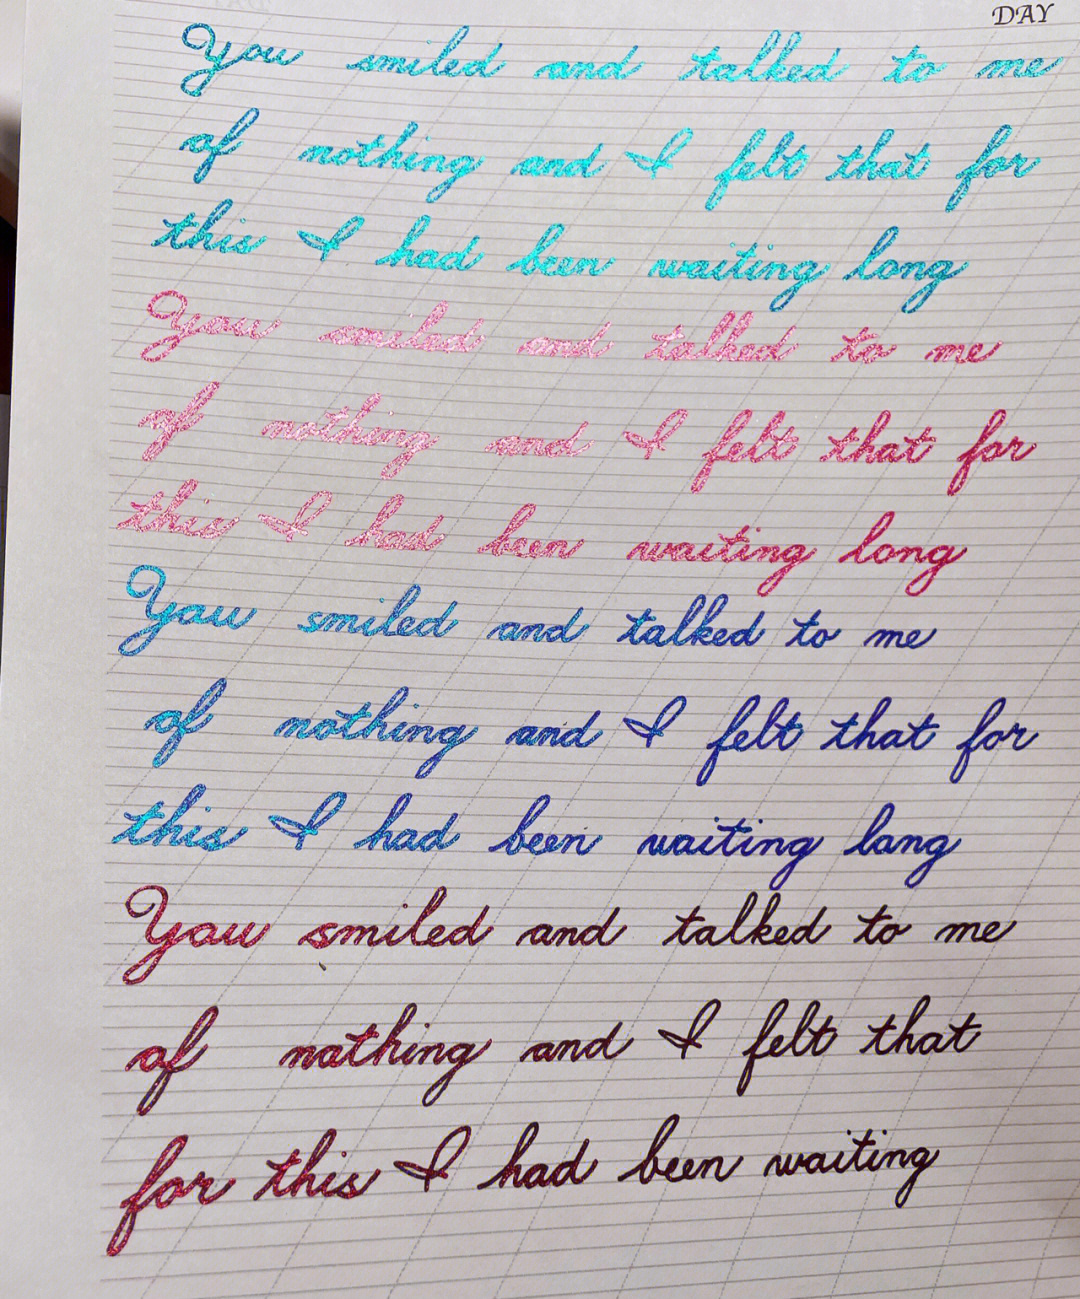 DAY
You smiled and talked to me
of nothing and I felt that for
this I had been waiting long
You smiled and talked to me
of nothing and I felt that for
this I had been waiting long
You smiled and talked to me
of nothing and I felt that for
this I had been waiting long
You smiled and talked to me
of nothing and I felt that
for this I had been waiting